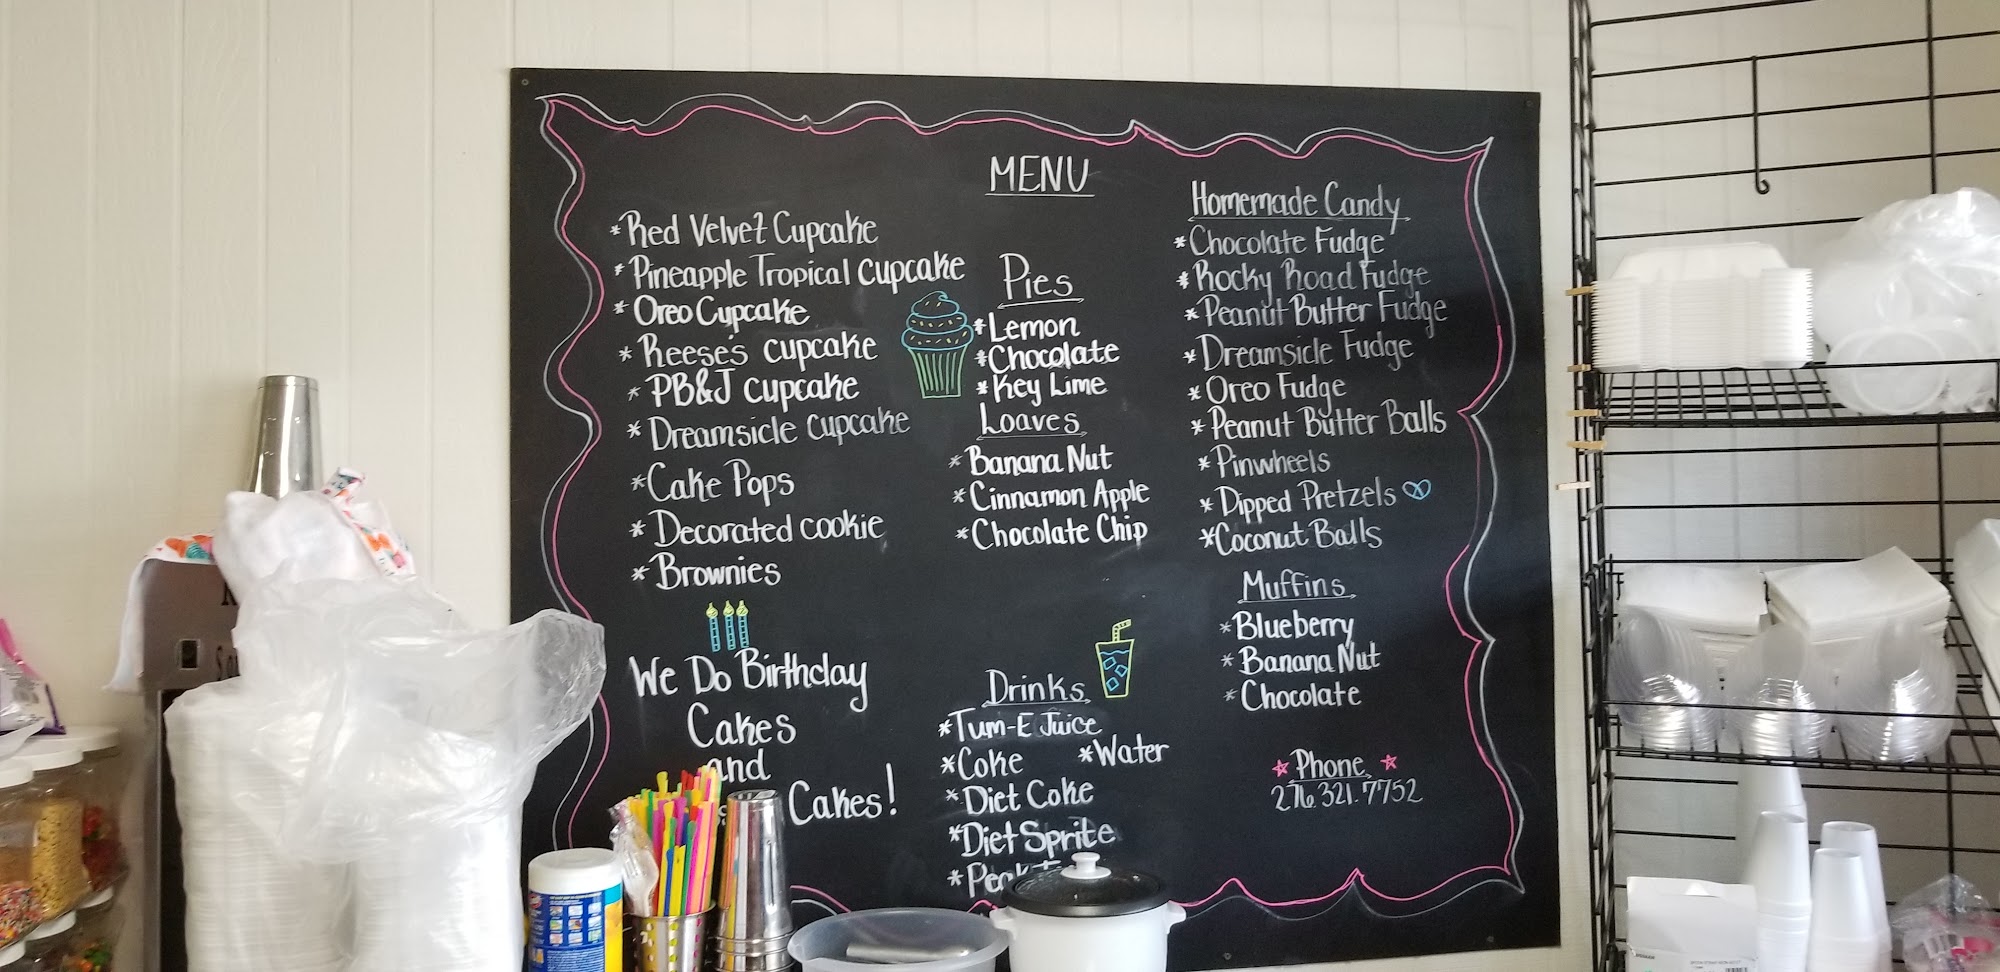 MENU
*Red Velvet Cupcake
*Pineapple Tropical Cupcake
*Oreo Cupcake
*Reese's Cupcake
*PB&J Cupcake
*Dreamsicle Cupcake
*Cake Pops
*Decorated cookie
*Brownies
We Do Birthday
Cakes
and
Cakes!
Pies
*Lemon
*Chocolate
*Key Lime
Loaves
*Banana Nut
*Cinnamon Apple
*Chocolate Chip
Drinks
*Tum-E Juice
*Coke *Water
*Diet Coke
*Diet Sprite
Homemade Candy
*Chocolate Fudge
*Rocky Road Fudge
*Peanut Butter Fudge
*Dreamsicle Fudge
*Oreo Fudge
*Peanut Butter Balls
*Pinwheels
*Dipped Pretzels
*Coconut Balls
Muffins
*Blueberry
*Banana Nut
*Chocolate
Phone
276.321.7752